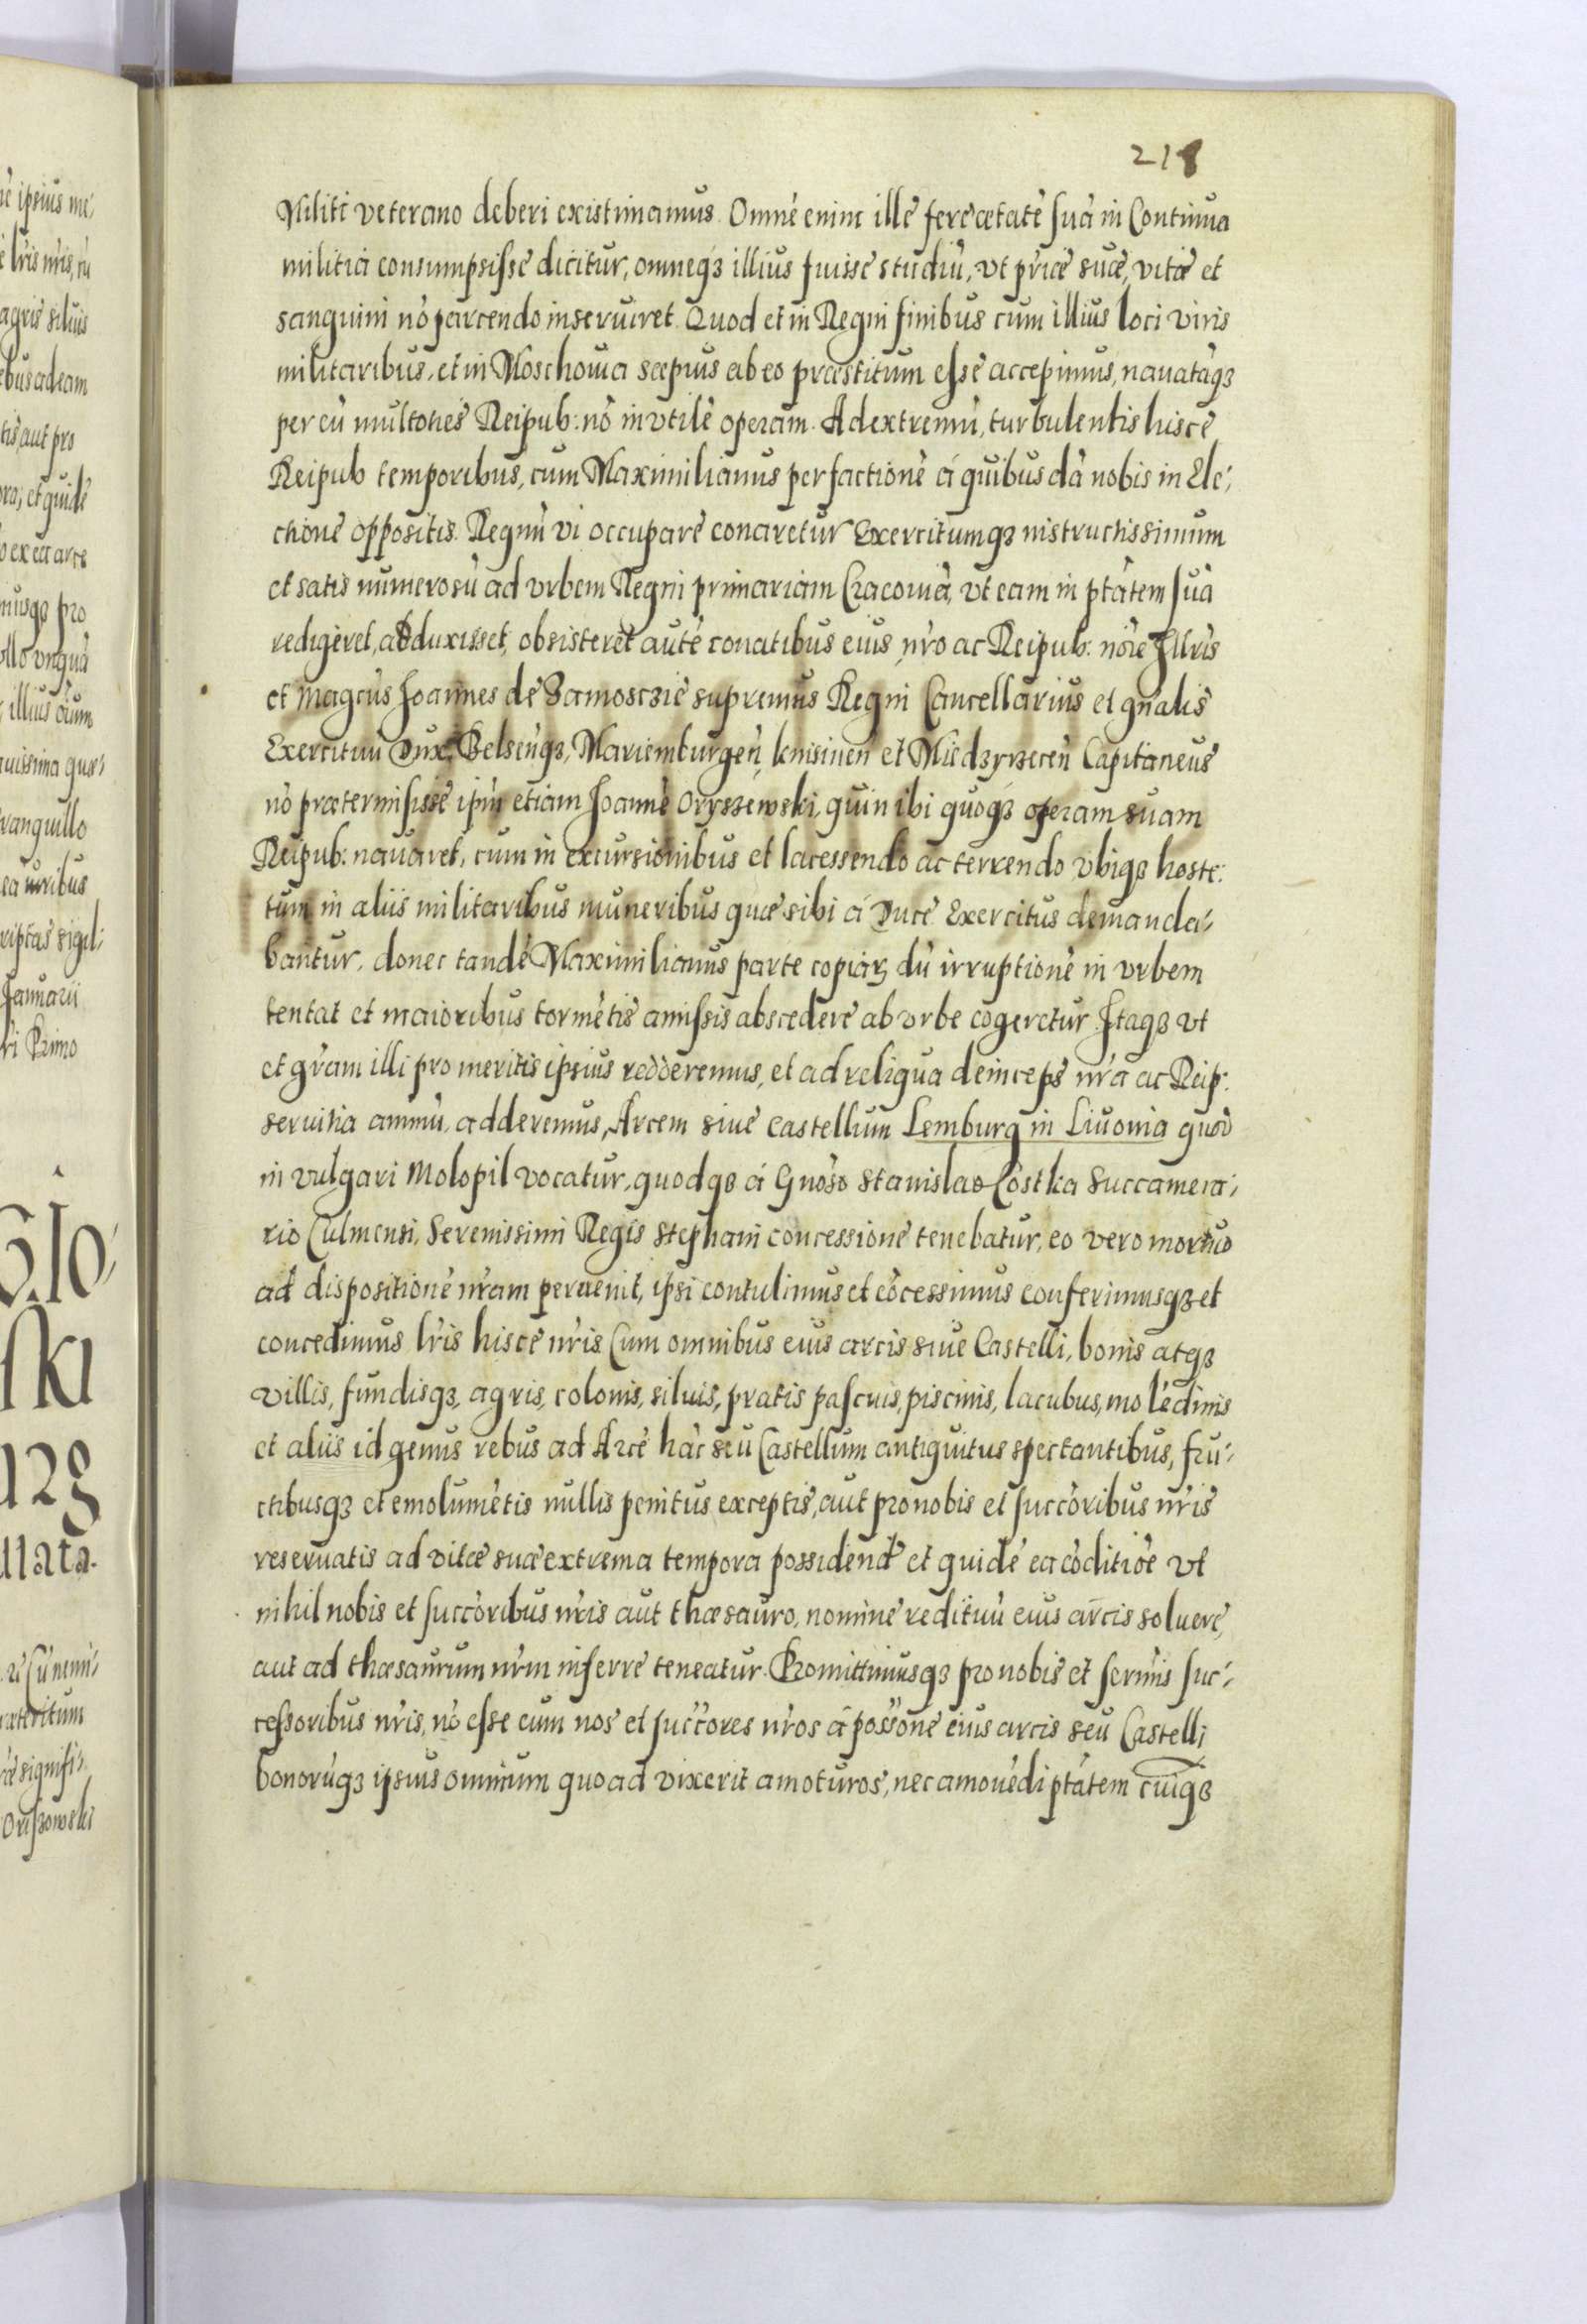 218
Militi veterano deberi existimamus. Omnẽ enim ille fere ætatẽ suã in Continua
militia consumpsisse dicitur, omneq3 illius fuisse studiũ, vt pr̃iæ suæ, vitæ et
sanguini nõ parcendo inserviret. Quod et in Regni finibus cum illius loci viris
militaribus, et in Moschouia sæpius ab eo præstitum esse accepimus, nauatãq3
per eũ multoties Reipub: nõ invtilẽ operam. Ad extremũ, turbulentis hisce
Reipub temporibus, cum Maximilianus per factionẽ á quibusdã nobis in Ele:
ctione oppositis. Regnũ vi occupare conaretur Exercitumq3 instructissimum
et satis numerosũ ad vrbem Regni primariam Cracouiã, vt eam in ptãtem suã
redigeret, adduxisset, obsisteret autẽ conatibus eius nr̃o ac Reipub: nõie Illr̃is
et Magcus Joannes de Zamosczie supremus Regni Cancellarius et gnãlis
Exercituũ Dux, Belseñq3, Mariemburgeñ, knisineñ et Miedzyrzeceñ Capitaneus
nõ prætermisisse ipm̃ etiam Joannẽ Oryszewski, quin ibi quoq3 operam suam
Reipub: nauaret, cum in excursionibus et lacessendo ac terrendo vbiq3 hostẽ:
tum in aliis militaribus muneribus quæ sibi á Duce Exercitus demanda:
bantur, donec tandẽ Maximilianus parte copiar3 dũ irruptionẽ in vrbem
tentat et maioribus tormẽtis amissis abscedere ab vrbe cogeretur. Itaq3 vt
et gr̃am illi pro meritis ipsius redderemus, et ad reliqua deinceps nr̃a ac Reip:
seruitia animũ adderemus, Arcem siue castellum Lemburg in Liuonia quod
in vulgari Molopil vocatur, quodq3 á Gnõso Stanislao Costka Succamera:
rio Culmensi, Serenissimi Regis Stephani concessione tenebatur, eo vero mortuo
ad dispositionẽ nr̃am peruenit, ipsi contulimus et cõcessimus conferimusq3 et
concedimus lr̃is hisce nr̃is Cum omnibus eius arcis siue Castelli, bonis atq3
villis, fundisq3, agris, colonis, siluis, pratis pascuis, piscinis, lacubus, molẽdinis
et aliis id genus rebus ad Arcẽ hãc seu Castellum antiquitus spectantibus, fru:
ctibusq3 et emolumẽtis nullis penitus exceptis, aut pro nobis et succõribus nr̃is
reseruatis ad vitæ suæ extrema tempora possidend et quidẽ ea cõditiõe vt
nihil nobis et succõribus nr̃is aut thæsauro, nomine redituũ eius arcis soluere,
aut ad thæsaurum nr̃m inferre teneatur. Promittimusq3 pro nobis et sermĩs suc:
cessoribus nr̃is, nõ esse eum nos et succõres nr̃os á possõne eius arcis seu Castelli
bonorũq3 ipsius omnium quoad vixerit amoturos, nec amouẽdi ptãtem cuiq3